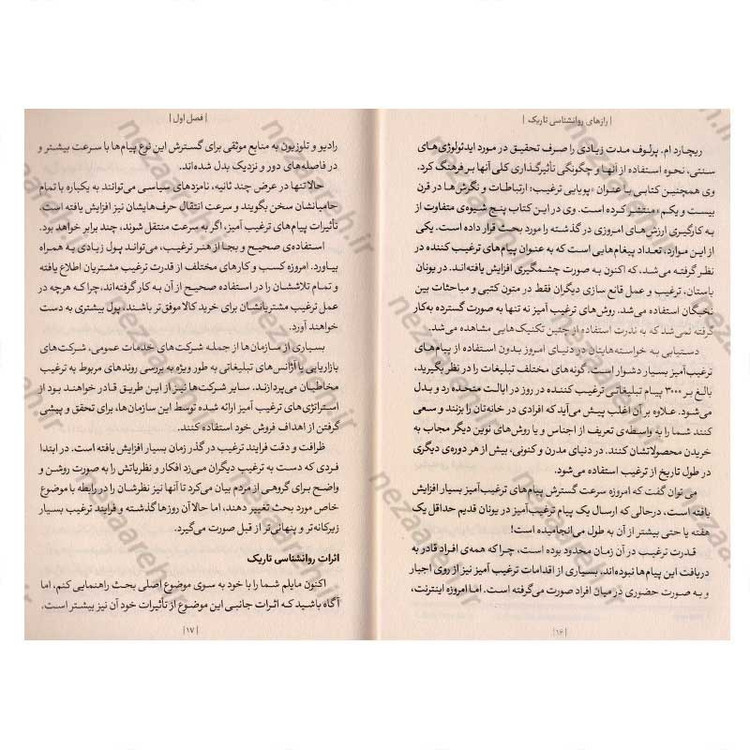 | رازهای روانشناسی تاریک |
ریچارد ام. پرلوف مدت زیادی را صرف تحقیق در مورد ایدئولوژی‌های
سنتی، نحوه استفاده از آنها و چگونگی تأثیرگذاری کلی آنها بر فرهنگ کرد.
وی همچنین کتابی با عنوان «پویایی ترغیب»: ارتباطات و نگرش‌ها در قرن
بیست و یکم» منتشر کرده است. وی در این کتاب پنج شیوه‌ی متفاوت از
به کارگیری ارزش‌های امروزی در گذشته را مورد بحث قرار داده است. یکی
از این موارد، تعداد پیغام‌هایی است که به عنوان پیام‌های ترغیب کننده در
نظر گرفته می‌شد، که اکنون به صورت چشمگیری افزایش یافته‌اند. در یونان
باستان، ترغیب و عمل قانع سازی دیگران فقط در متون کتبی و مباحثات بین
نخبگان استفاده می‌شد. روش‌های ترغیب آمیز نه تنها به صورت گسترده به‌کار
گرفته نمی‌شد که به ندرت استفاده از چنین تکنیک‌هایی مشاهده می‌شد.
دستیابی به خواسته‌هایتان در دنیای امروز بدون استفاده از پیام‌های
ترغیب‌آمیز بسیار دشوار است. گونه‌های مختلف تبلیغات را در نظر بگیرید،
بالغ بر ۳۰۰۰ پیام تبلیغاتی ترغیب کننده در روز در ایالت متحده رد و بدل
می‌شود. علاوه بر آن اغلب پیش می‌آید که افرادی در خانه‌تان را بزنند و سعی
کنند شما را به واسطه‌ی تعریف از اجناس و یا روش‌های نوین دیگر مجاب به
خریدن محصولاتشان کنند. در دنیای مدرن و کنونی، بیش از هر دوره‌ی دیگری
در طول تاریخ از ترغیب استفاده می‌شود.
می توان گفت که امروزه سرعت گسترش پیام‌های ترغیب‌آمیز بسیار افزایش
یافته است، درحالی که ارسال یک پیام ترغیب‌آمیز در یونان قدیم حداقل یک
هفته یا حتی بیشتر از آن به طول می‌انجامیده است!
قدرت ترغیب در آن زمان محدود بوده است، چرا که همه‌ی افراد قادر به
دریافت این پیام‌ها نبوده‌اند. بسیاری از اقدامات ترغیب آمیز نیز از روی اجبار
و به صورت حضوری در میان افراد صورت می‌گرفته است. اما امروزه اینترنت،
| ۱۶ |
| فصل اول |
رادیو و تلوزیون به منابع موثقی برای گسترش این نوع پیام‌ها با سرعت بیشتر و
در فاصله‌های دور و نزدیک بدل شده‌اند.
حالا تنها در عرض چند ثانیه، نامزدهای سیاسی می‌توانند به یکباره با تمام
حامیانشان سخن بگویند و سرعت انتقال حرف‌هایشان نیز افزایش یافته است.
تأثیرات پیام‌های ترغیب آمیز، اگر به سرعت منتقل شوند، چند برابر خواهد بود.
استفاده‌ی صحیح و بجا از هنر ترغیب، می‌تواند پول زیادی به همراه
بیاورد. امروزه کسب و کارهای مختلف از قدرت ترغیب مشتریان اطلاع یافته
و تمام تلاششان را در استفاده صحیح از آن به کار گرفته‌اند، چرا که هرچه در
عمل ترغیب مشتریانشان برای خرید کالا موفق‌تر باشند، پول بیشتری به دست
خواهند آورد.
بسیاری از سازمان‌ها از جمله شرکت‌های خدمات عمومی، شرکت‌های
بازاریابی یا آژانس های تبلیغاتی به طور ویژه به بررسی روندهای مربوط به ترغیب
مخاطبان می‌پردازند. سایر شرکت‌ها نیز از این طریق قادر خواهند بود از
استراتژی‌های ترغیب آمیز ارائه شده توسط این سازمان‌ها، برای تحقق و پیشی
گرفتن از اهداف فروش خود استفاده کنند.
ظرافت و دقت فرایند ترغیب در گذر زمان بسیار افزایش یافته است. در ابتدا
فردی که دست به ترغیب دیگران می‌زد افکار و نظریاتش را به صورت روشن و
واضح برای گروهی از مردم بیان می‌کرد تا آنها نیز نظرشان را در رابطه با موضوع
خاص مورد بحث تغییر دهند، اما حالا آن روزها گذشته و فرایند ترغیب بسیار
زیرکانه‌تر و پنهانی‌تر از قبل صورت می‌گیرد.
اثرات روانشناسی تاریک
اکنون مایلم شما را با خود به سوی موضوع اصلی بحث راهنمایی کنم، اما
آگاه باشید که اثرات جانبی این موضوع از تأثیرات خود آن نیز بیشتر است.
| ۱۷ |
nezaareh.ir